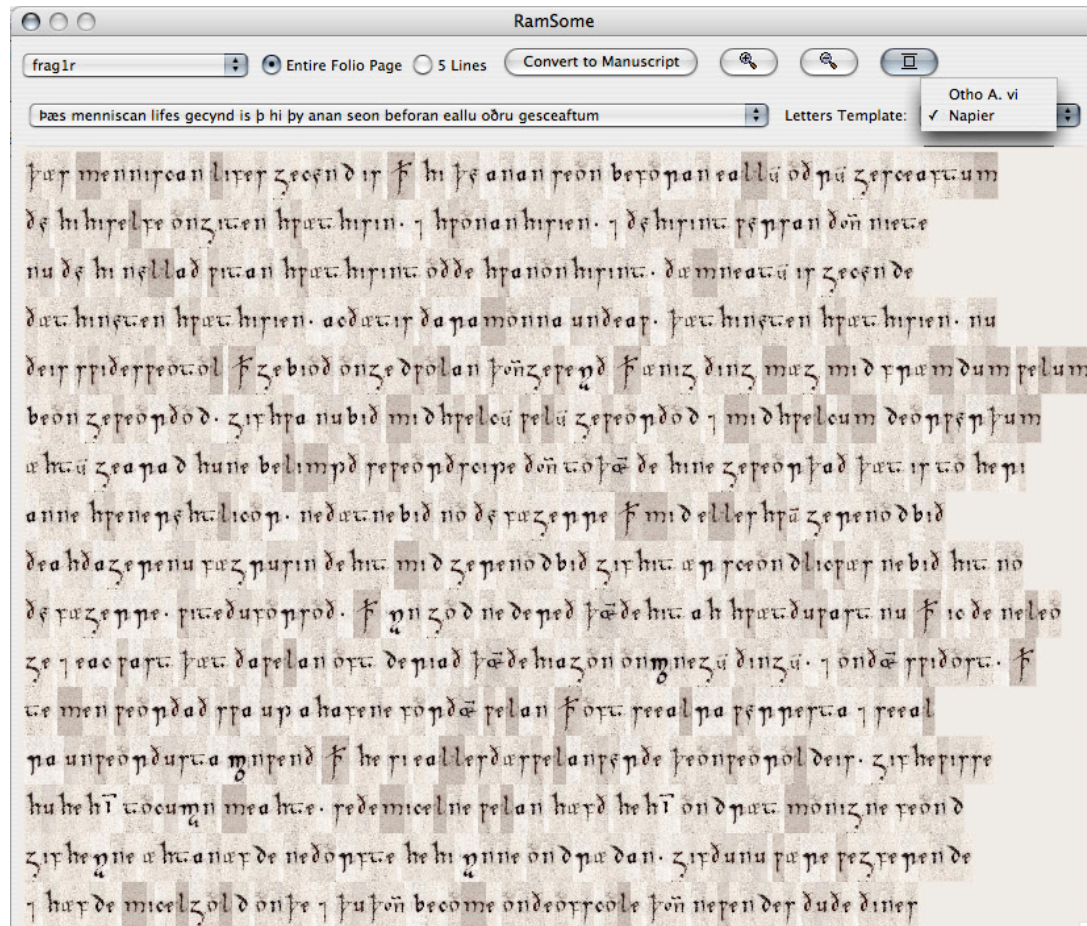 RamSome
frag1r Entire Folio Page 5 Lines Convert to Manuscript
Otho A. vi
Þæs menniscan lifes gecynd is þ hi þy anan seon beforan eallu oðru gesceaftum Letters Template: Napier
þæs menniscan lifes gecynd is ꝥ hi þy anan seon beforan eallū oðrū gesceaftum
ðy hi hi selfe ongiten hƿæt hi sin. ⁊ hƿonan hi sin. ⁊ ðy hi sint ƿyrsan ðoñ niete
nu ðy hi nyllað ƿitan hƿæt hi sint oððe hƿanon hi sint. ðæm neatū is gecynde
ðæt hi nyten hƿæt hi sien. ac ðæt is ðara monna unðeaƿ. þæt hi nyten hƿæt hi sien. nu
ðe is sƿiðe sƿeotol ꝥ ge bioð on gedƿolan þoñ ge ꝥ ænig ðing mæg mid fræmdum ƿelum
beon geƿeorðod. gif hƿa nu bið mid hƿelcū ƿelū geƿeorðod ⁊ mid hƿelcum deorƿyrþum
æhtū gearad hu ne belimpð se ƿeorðscipe ðoñ to þǣ ðe hine geƿeorþað þæt is to heri
anne hƿene ryhtlicor. ne ðæt ne bið no ðy fægerre ꝥ mid elles hƿā gerenod bið
ðeah ða gerenu fægru sin ðe hit mid gerenod bið gif hit ær sceondlic ƿæs ne bið hit no
ðy fægerre. ƿite ðu for soð. ꝥ god ne dereð þǣ ðe hit ah hƿæt ðu ƿast nu ꝥ ic ðe ne leo
ge ⁊ eac ƿast þæt ða ƿelan oft deriað þǣ ðe hi agon on ðingū. ⁊ on ðǣ sƿiðost. ꝥ
te men ƿeorðað sƿa up ahafene for ðǣ ƿelan ꝥ oft se ealra ƿyrresta ⁊ se eal
ra unƿeorðusta ƿenð ꝥ he sie alles ðæs ƿelan ƿyrðe þe on ƿeorolde is. gif he ƿisse
hu he hī to meahte. se ðe micelne ƿelan hæfð he hī ondræt monigne feond
gif he æhta næfde ne ðorfte he hi ondrædan. gif ðu nu ƿære ƿegferende
⁊ hæfde micel gold on þe ⁊ þu þoñ become on ðeofscole þoñ ne ƿendes ðu ðe ðines